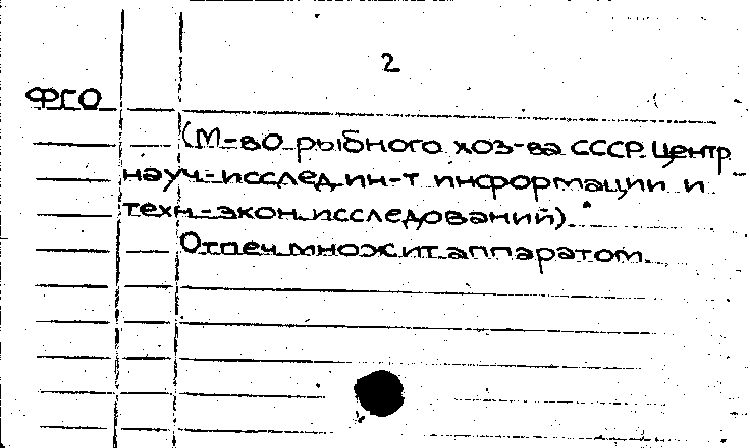 2
ФГО
(М-во рыбного хоз-ва СССР. Центр.
науч.-исслед. ин-т информации и
техн.-экон. исследований).
Отпеч. множит. аппаратом.